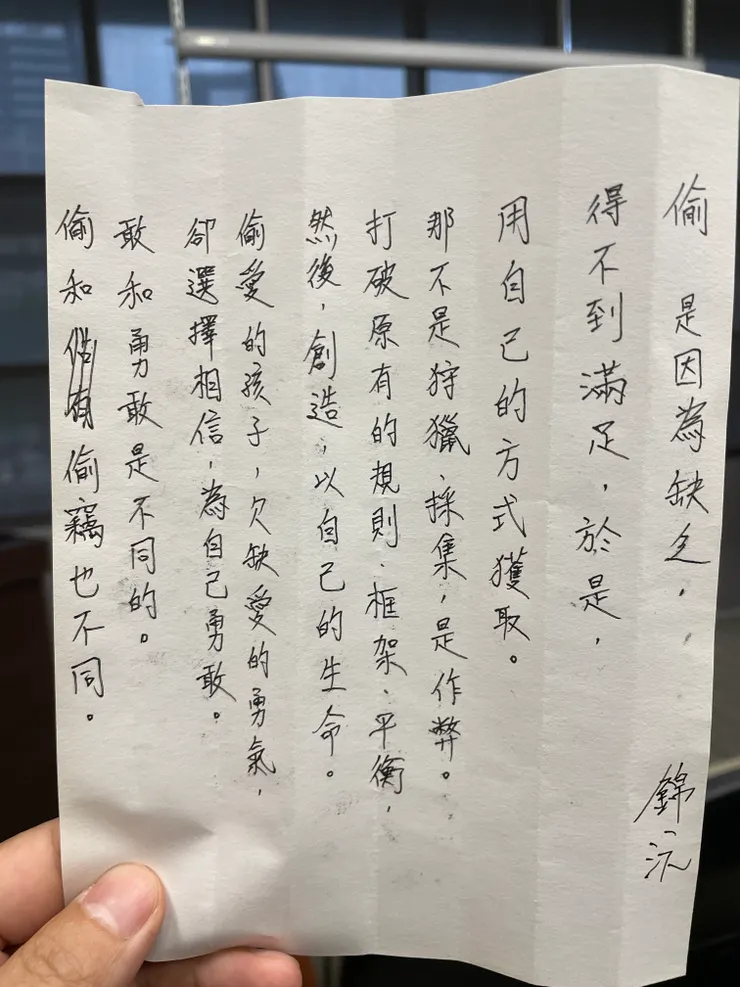 偷 是因為缺乏,
得不到滿足,於是,
用自己的方式獲取。
那不是狩獵、採集,是作弊。
打破原有的規則、框架、平衡,
然後,創造,以自己的生命。
偷愛的孩子,欠缺愛的勇氣,
卻選擇相信,為自己勇敢。
敢和勇敢是不同的。
偷和偷竊也不同。
錦沅